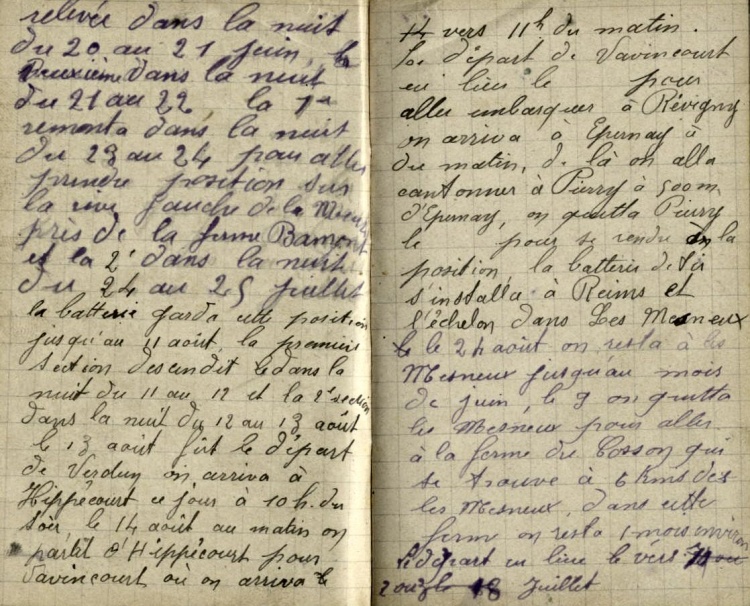 relevée dans la nuit
du 20 au 21 juin, la
Deuxième dans la nuit
du 21 au 22, la 1re
remonta dans la nuit
du 23 au 24 pour aller
prendre position sur
la rive gauche de la Meuse
près de la ferme Bamont
et la 2e dans la nuit
du 24 au 25 juillet
la batterie garda cette position
jusqu'au 11 août, la première
section descendit le dans la
nuit du 11 au 12 et la 2e section
dans la nuit du 12 au 13 août
le 13 août fût le départ
de Verdun on arriva à
Hippécourt ce jour à 10 h. du
soir, le 14 août au matin on
partit d'Hippécourt pour
Vavincourt où on arriva le
14 vers 11h du matin.
Le départ de Vavincourt
eu lieu le pour
aller embarquer à Révigny
on arriva à Epernay à
du matin, de là on alla
cantonner à Pierry à 500m
d'Epernay, on quitta Pierry
le pour se rendre en la
position, la batterie de tir
s'installa à Reims et
l'échelon dans Les Mesneux
le 24 août on resta à les
Mesneux jusqu'au mois
de juin, le 9 on quitta
les Mesneux pour aller
à la ferme du Cosson qui
se trouve à 6 Kms des
les Mesneux, dans cette
ferme on resta 1 mois environ
le départ eu lieu le vers
18 Juillet